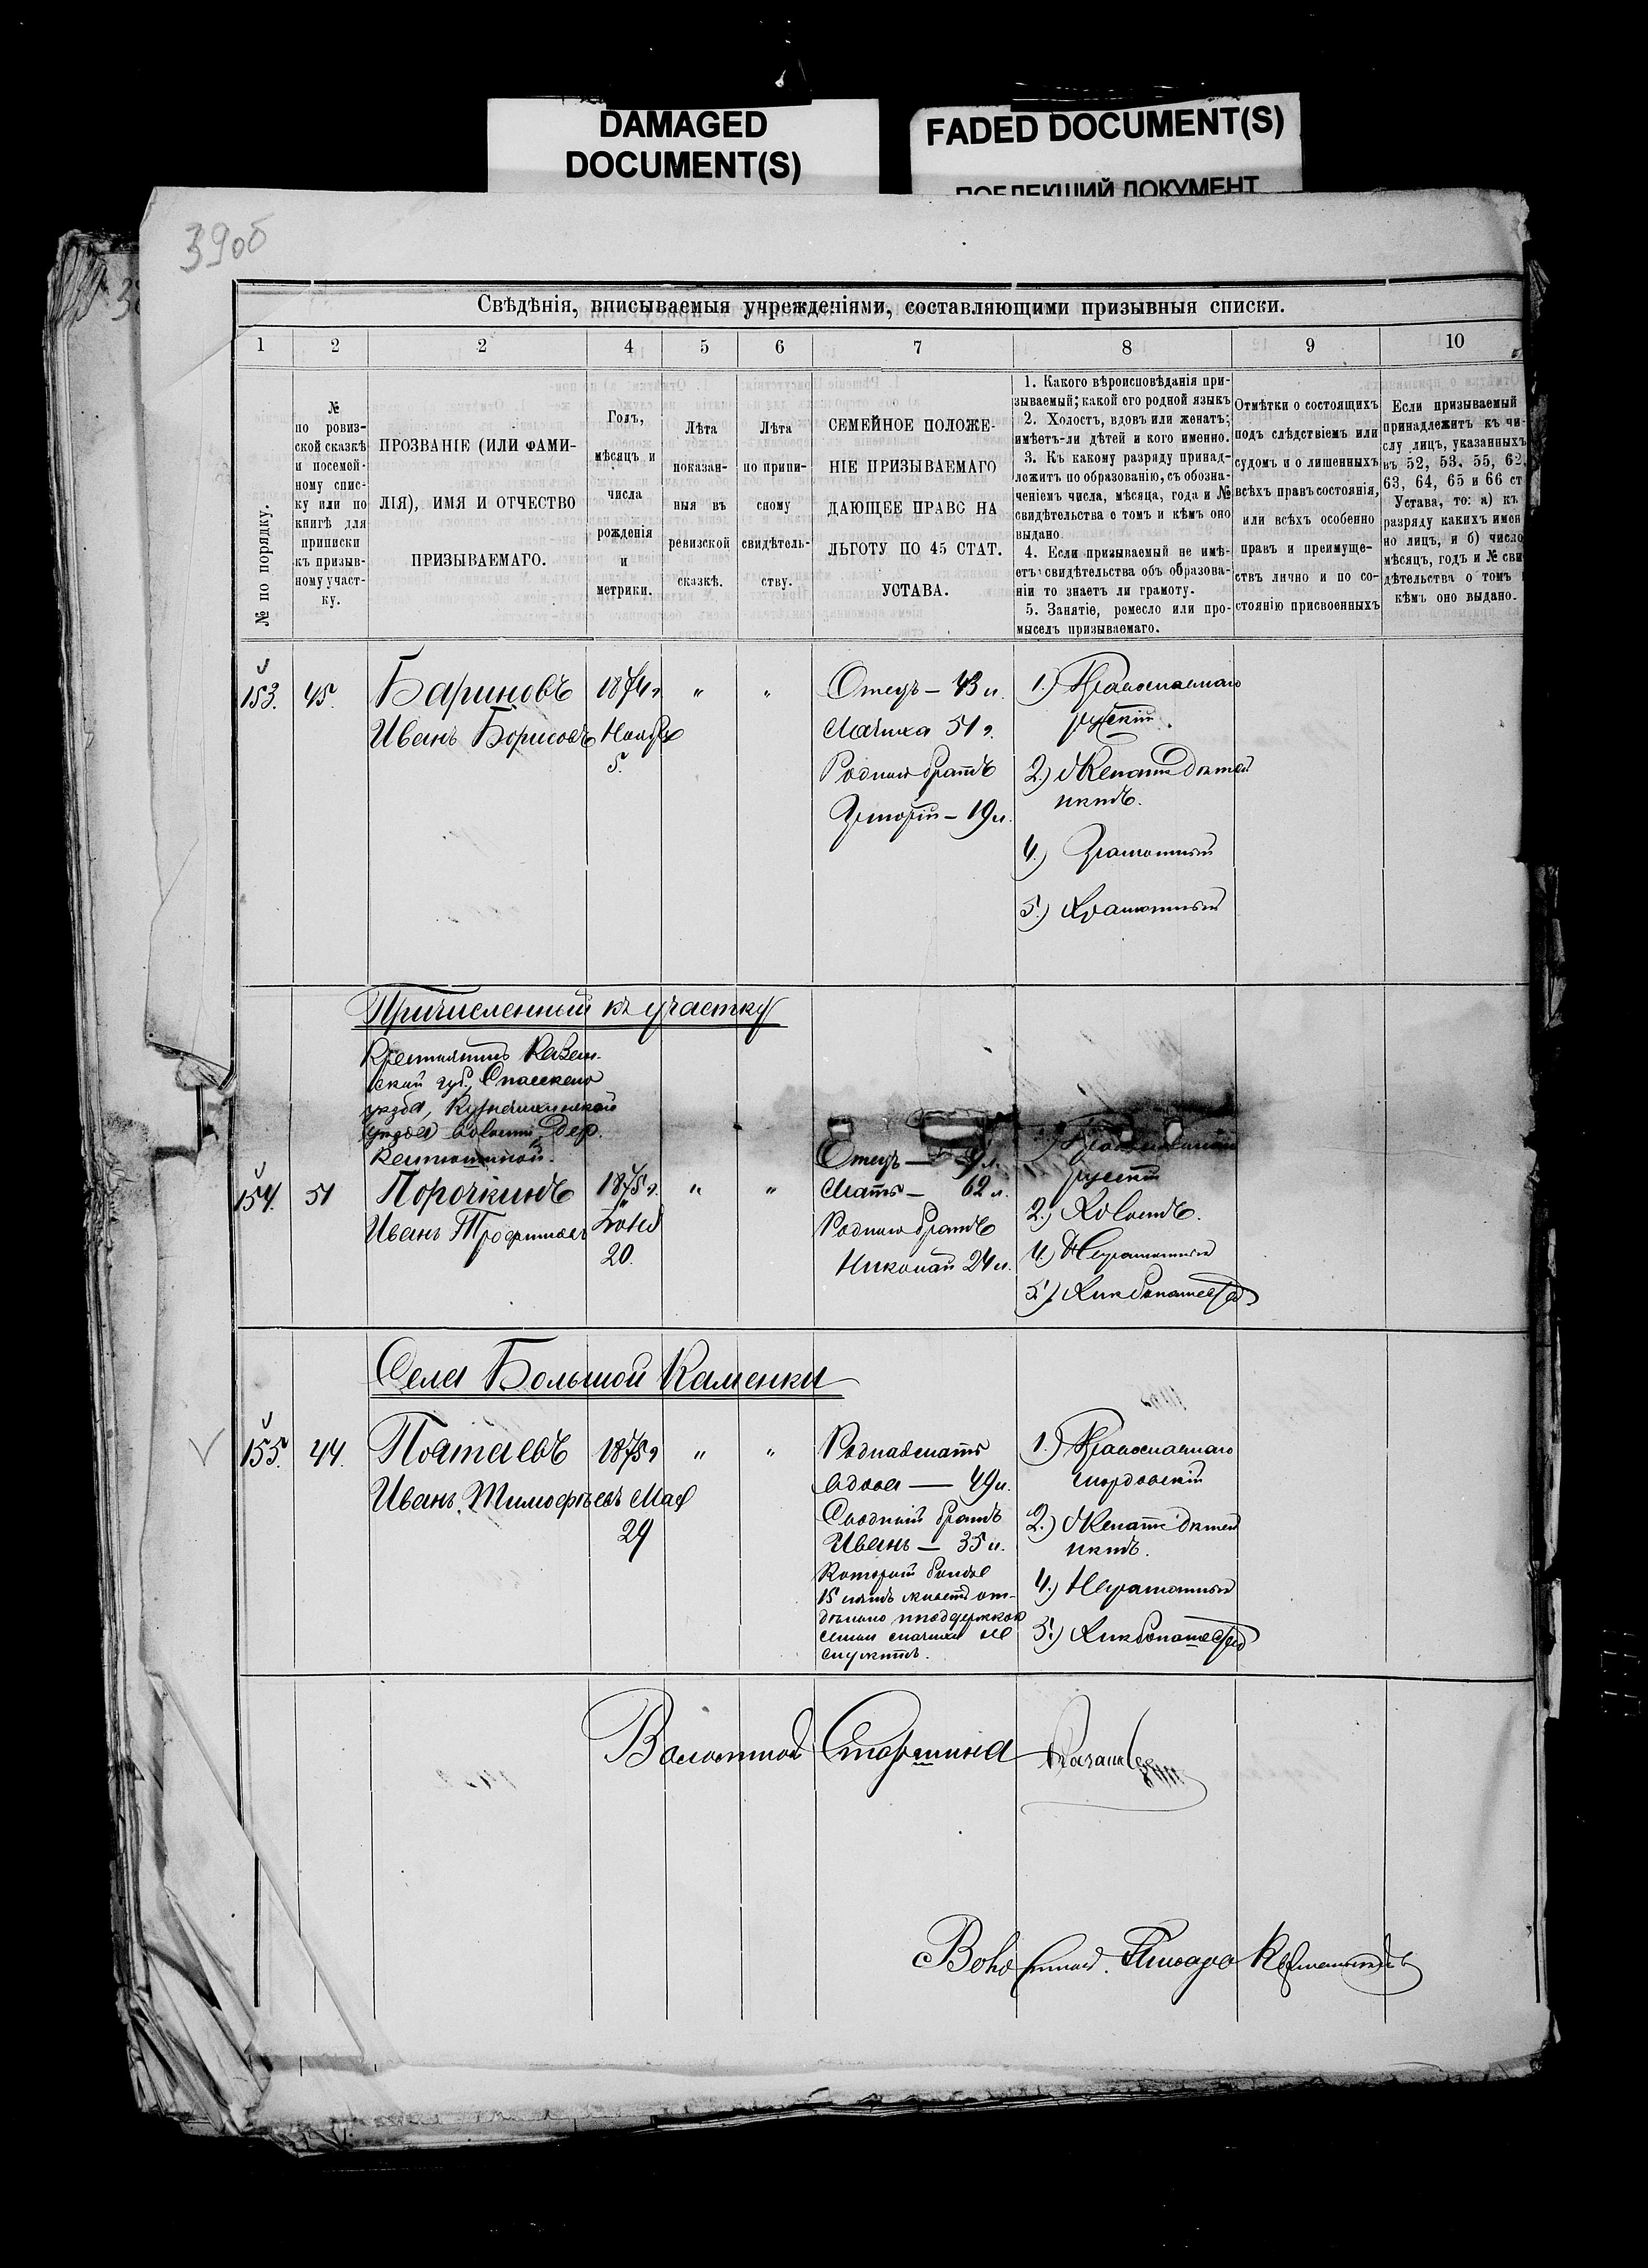 DAMAGED
DOCUMENT(S)
FADED DOCUMENT(S)
ПОБЛЕКШИЙ ДОКУМЕНТ
39об
Свѣдѣнія, вписываемыя учрежденіями, составляющими призывныя списки.
1 2 2 4 5 6 7 8 9 10
№ по порядку.
№
по ровиз-
ской сказкѣ
и посемей-
ному спис-
ку или по
книгѣ для
приписки
къ призыв-
ному участ-
ку.
ПРОЗВАНІЕ (ИЛИ ФАМИ-
ЛІЯ), ИМЯ И ОТЧЕСТВО
ПРИЗЫВАЕМАГО.
Годъ,
мѣсяцъ и
числа
рожденія
и
метрики.
Лѣта
показан-
ныя въ
ревизской
сказкѣ.
Лѣта
по припи-
сному
свидѣтель-
ству.
СЕМЕЙНОЕ ПОЛОЖЕ-
НІЕ ПРИЗЫВАЕМАГО
ДАЮЩЕЕ ПРАВО НА
ЛЬГОТУ ПО 45 СТАТ.
УСТАВА.
1. Какого вѣроисповѣданія при-
зываемый; какой его родной языкъ
2. Холостъ, вдовъ или женатъ;
имѣетъ-ли дѣтей и кого именно.
3. Къ какому разряду принад-
лежитъ по образованію, съ обозна-
ченіемъ числа, мѣсяца, года и №
свидѣтельства о томъ и кѣмъ оно
выдано
4. Если призываемый не имѣ-
етъ свидѣтельства объ образова-
ніи то знаетъ ли грамоту.
5. Занятіе, ремесло или про-
мыселъ призываемаго.
Отмѣтки о состоящихъ
подъ слѣдствіемъ или
судомъ и о лишенныхъ
всѣхъ правъ состоянія,
или всѣхъ особенно
правъ и преимуще-
ствъ лично и по со-
стоянію присвоенныхъ
Если призываемый
принадлежитъ къ чи-
слу лицъ, указанныхъ
въ 52, 53, 55, 62,
63, 64, 65 и 66 ст
Устава, то: а) къ
разряду какихъ имен
но лицъ, и б) число
мѣсяцъ, годъ и № сви
дѣтельства о томъ
кѣмъ оно выдано.
153. 45. Бариновъ 1874 г. " "
Иванъ Борисовъ Ноября
5.
Отецъ — 43 л.
Мачиха 51 г.
Родной братъ
Григорій — 19 л.
1.) Православнаго
русскій.
2.) Женатъ дѣтей
нѣтъ.
4.) Грамотный
5.)
Причисленный къ участку
Крестьянинъ Казан-
ской губ., Спасскаго
уѣзда,
волости Дер.
154. 51 Порочкинъ 1875 г. " "
Иванъ Трофимовъ
20.
Отецъ — л.
Мать — 62 л.
Родной братъ
Николай 24 л.
русскій
2.) Холостъ.
4.) Неграмотный
5.) Хлѣбопашество
Села Большой Каменки
155. 44. Потаевъ 1875 г. " "
Иванъ Тимофѣевъ Мая
29
Родная мать
вдова — 49 л.
Сводный братъ
Иванъ — 35 л.
Который болѣе
15 лѣтъ живетъ от-
дѣльно и поддержкой
семьи мачихи не
служитъ.
1.) Православнаго
мордовскій
2.) Женатъ дѣтей
нѣтъ.
4.) Неграмотный
5.) Хлѣбопашество
Волостной Старшина
Волостной Писарь